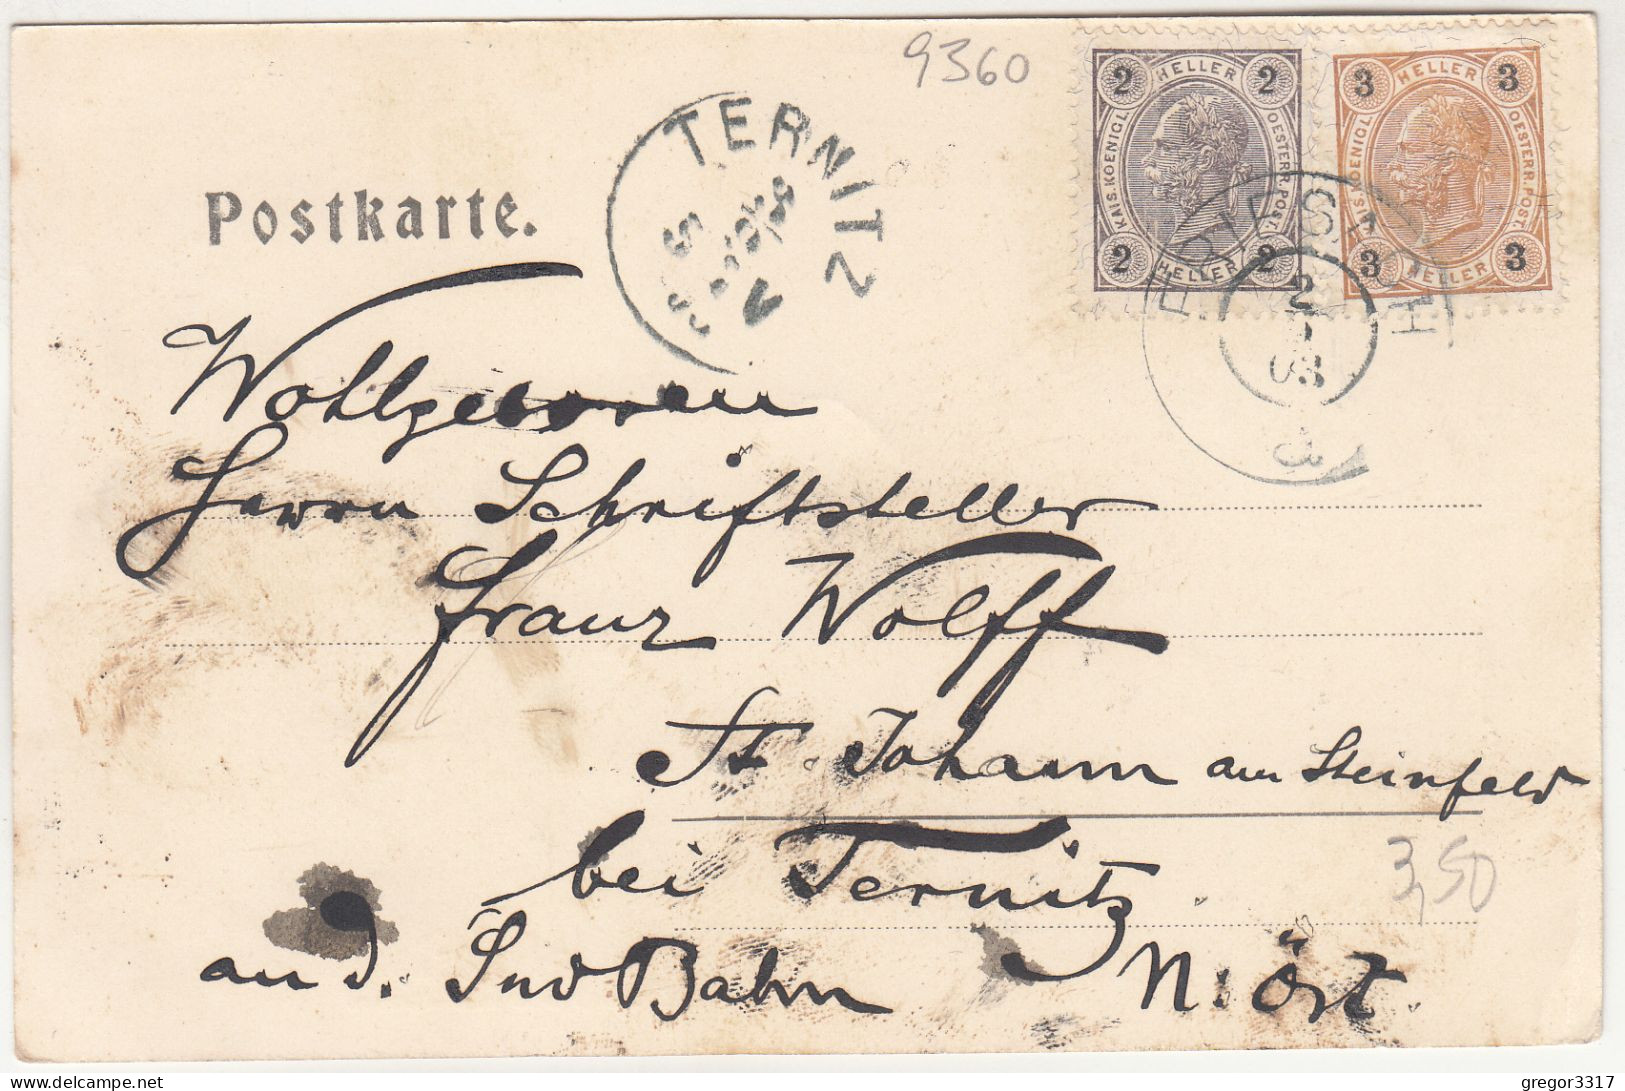 9360
Postkarte.
TERNITZ
2 HELLER 2
KAIS. KOENIGL. OESTERR. POST.
2 HELLER 2
3 HELLER 3
KAIS. KOENIGL. OESTERR. POST.
3 HELLER 3
FRIESACH
2
03
3
Wohlgeboren
Herrn Schriftsteller
Franz Wolff
St. Johann am Steinfeld
bei Ternitz
an d. Süd Bahn N: Öst.
3,50
gregor3317